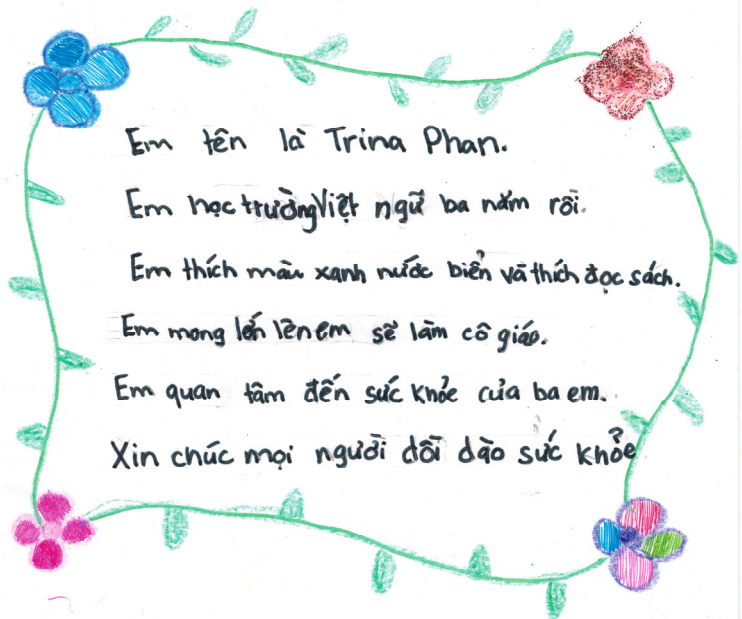 Em tên là Trina Phan.
Em học trường Việt ngữ ba năm rồi.
Em thích màu xanh nước biển và thích đọc sách.
Em mong lớn lên em sẽ làm cô giáo.
Em quan tâm đến sức khỏe của ba em.
Xin chúc mọi người dồi dào sức khỏe